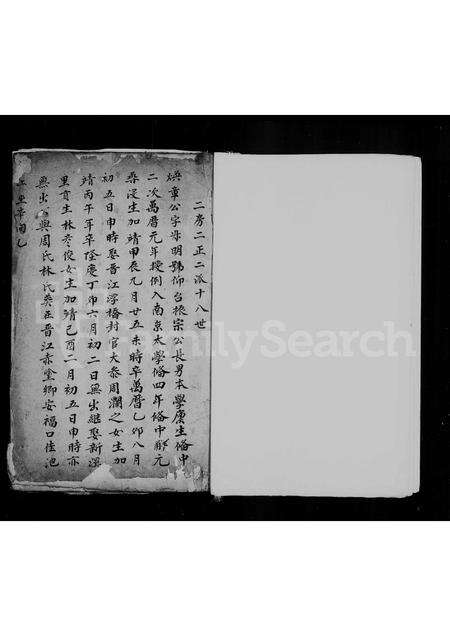 二房二正二派十八世
煥章公字毋明號仰台振宗公長男本學廩生俻中
二次萬曆元年授例入南京太學俻四年俻中鄊元
桒没生加靖甲辰九月廿五未時卒萬曆乙卯八月
初五日申時娶晋江浮橋封官大泰周瀾之女生加
靖丙午年卒隆慶丁卯六月初二日無出継娶新深
里貢生林彦俊女生加靖己酉二月初五日申時亦
無出公與周氏林氏桒在晋江赤塗鄉安福口佳池
FamilySearch